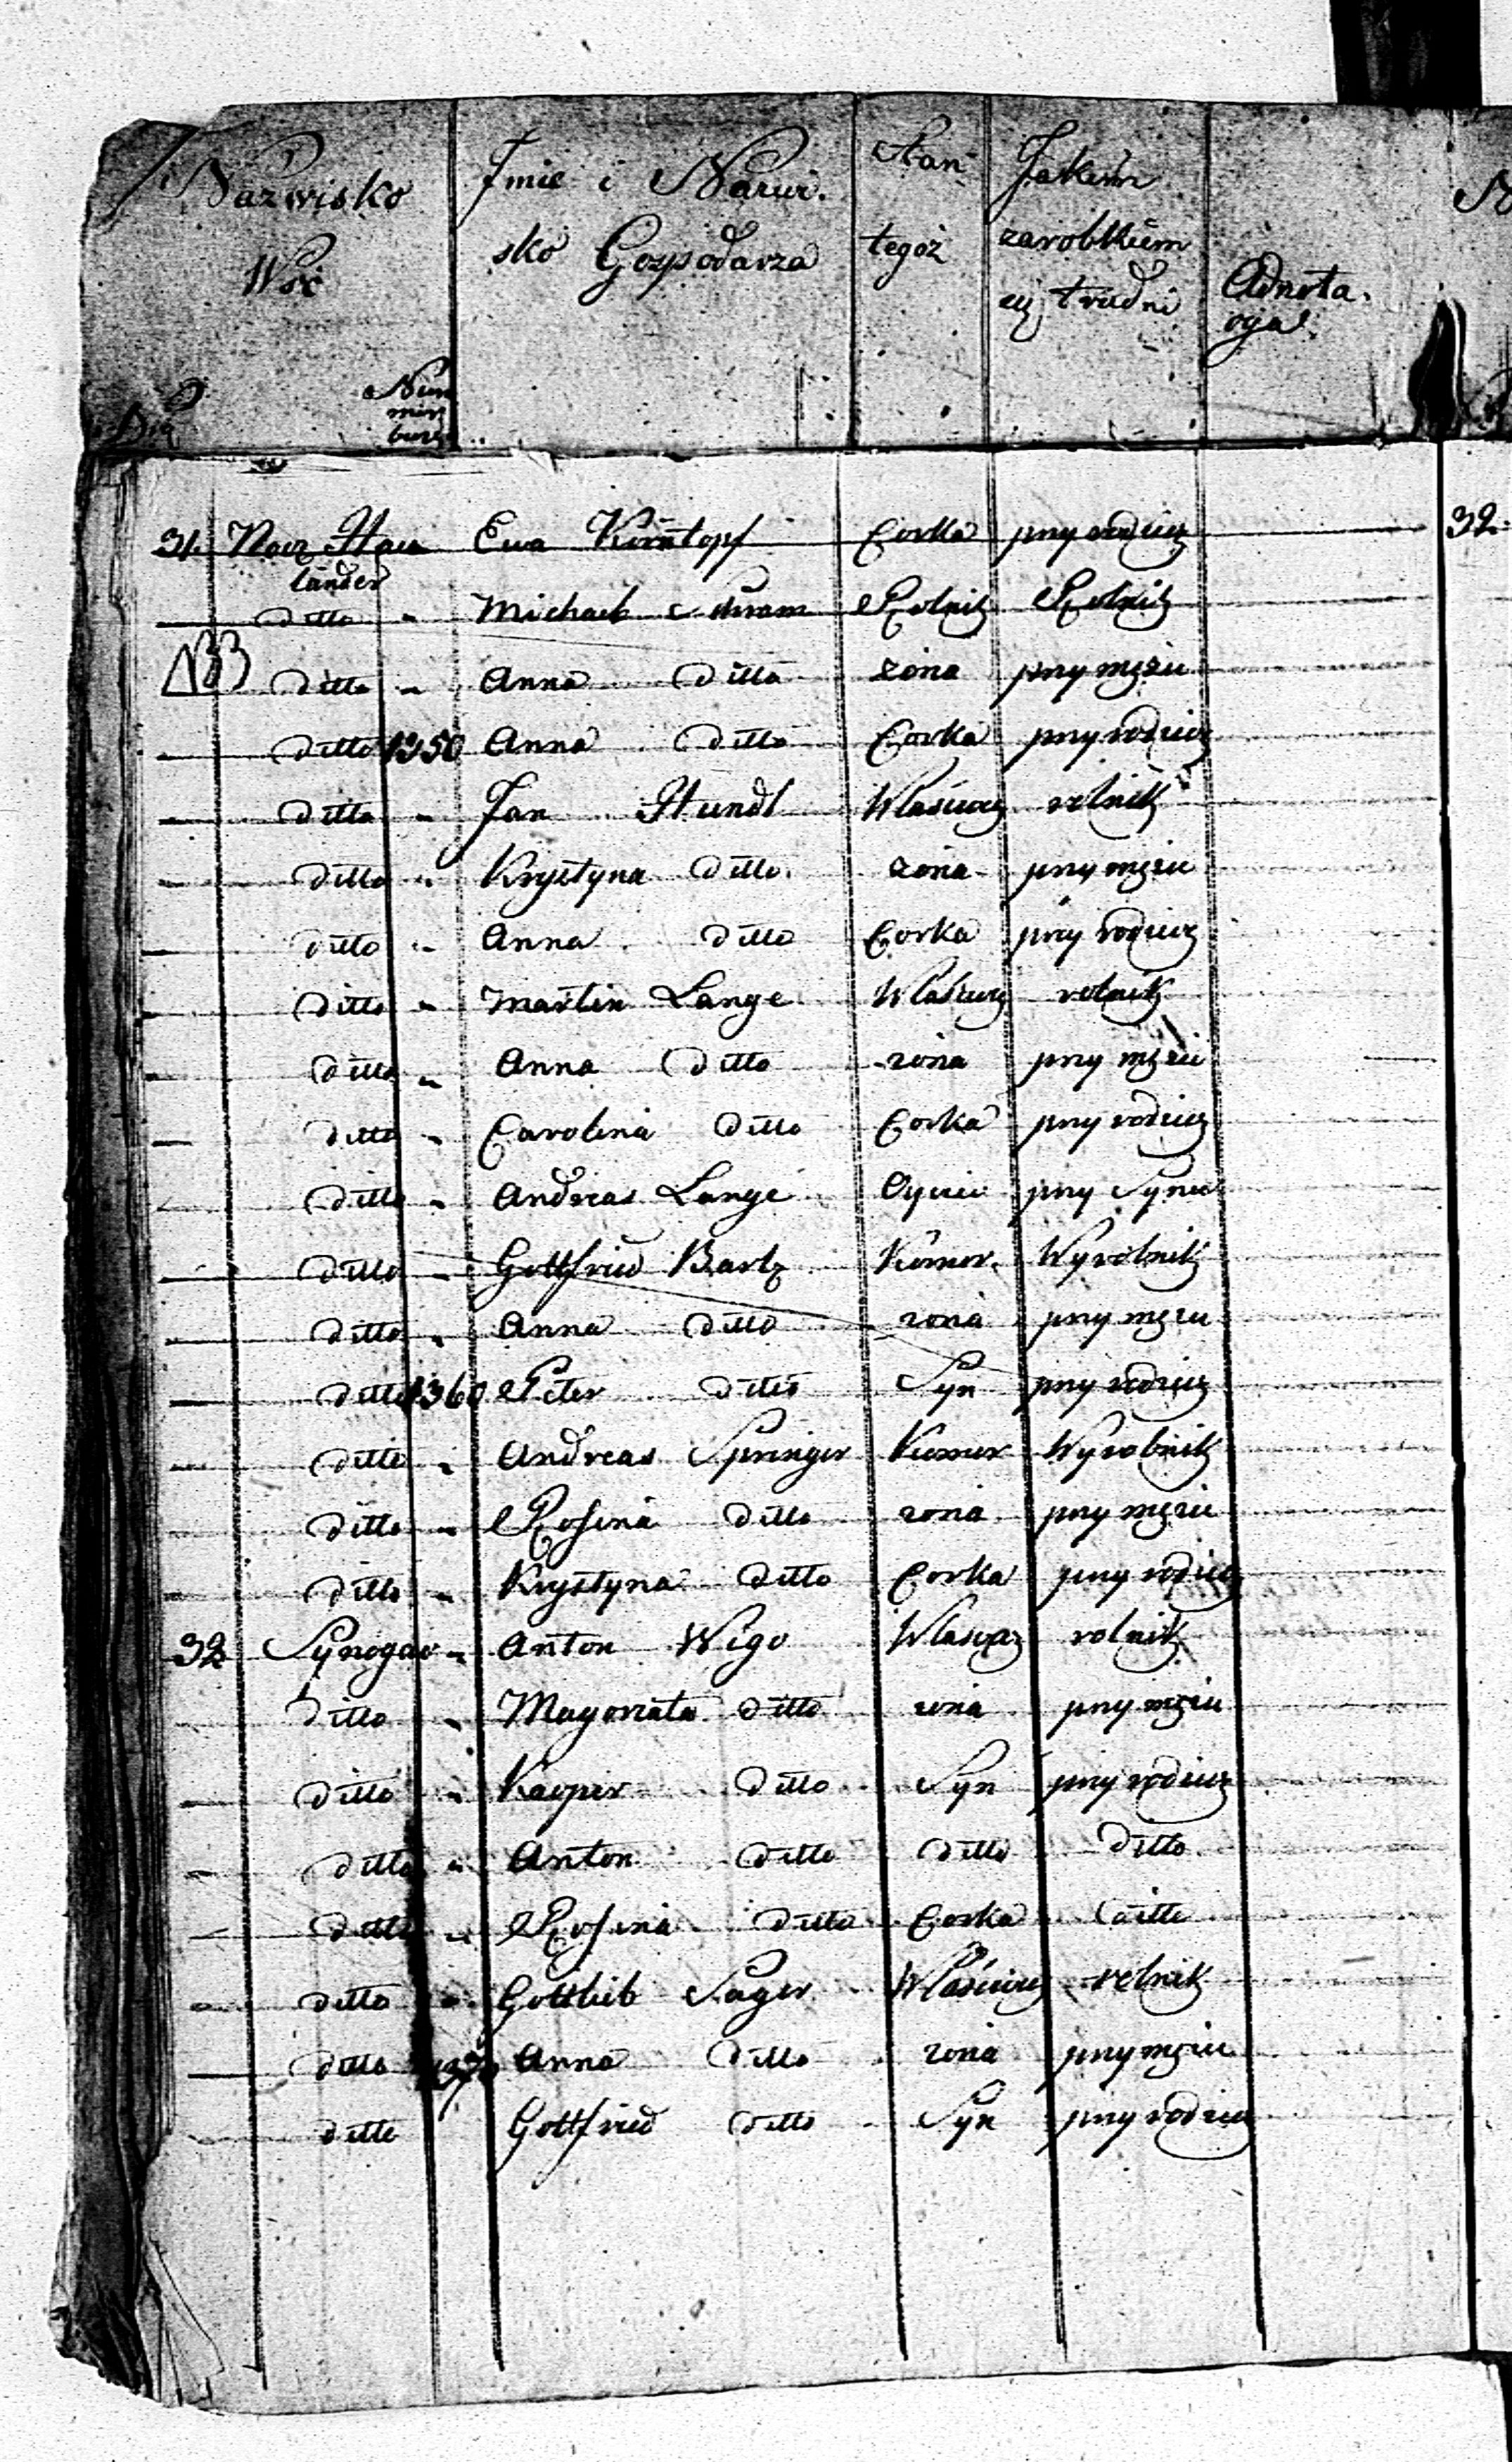 Nazwisko
Wsi
Imie i Nazwi.
sko Gospodarza
Stan
tegoż
Jakiem
zarobkiem
się trudni
Adnota.
cya
Num
mer
31. Nacz Hau Ewa Korntopf Corka przy rodzicz 32.
länder
— ditto " Michael Rolnik Rolnik
ditto " Anna ditto zóna przy mężu
— ditto 1350 Anna ditto Corka przy rodzicz
— ditto " Jan Hundt Właścicz rolnik
— ditto " Krystyna ditto zóna przy mężu
— ditto " Anna ditto Corka przy rodzicz
— ditto " Martin Lange Właścicz rolnik
— ditto " Anna ditto zóna przy mężu
— ditto " Carolina ditto Corka przy rodzicz
— ditto " Andreas Lange Oyciec przy Synu
— ditto " Gottfried Bartz Komor. Wyrobnik
— ditto " Anna ditto zóna przy mężu
— ditto 1360 Peter ditto Syn przy rodzicz
— ditto " Andreas Springer Komor Wyrobnik
— ditto " Rosina ditto zóna przy mężu
— ditto " Krystyna ditto Corka przy rodzicz
32 Synogac " Anton Wigo Właścicz rolnik
— ditto " Magorzata ditto zóna przy mężu
— ditto " Kacper ditto Syn przy rodzicz
— ditto " Anton ditto ditto ditto
— ditto " Rosina ditto Corka ditto
— ditto " Gottlieb Sager Właścicz rolnik
— ditto 1370 Anna ditto zóna przy mężu
— ditto Gottfried ditto Syn przy rodzicz